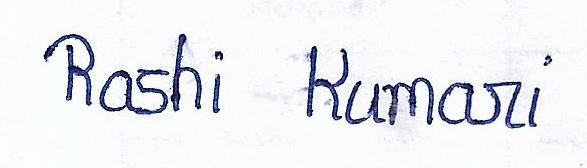 Rashi Kumari